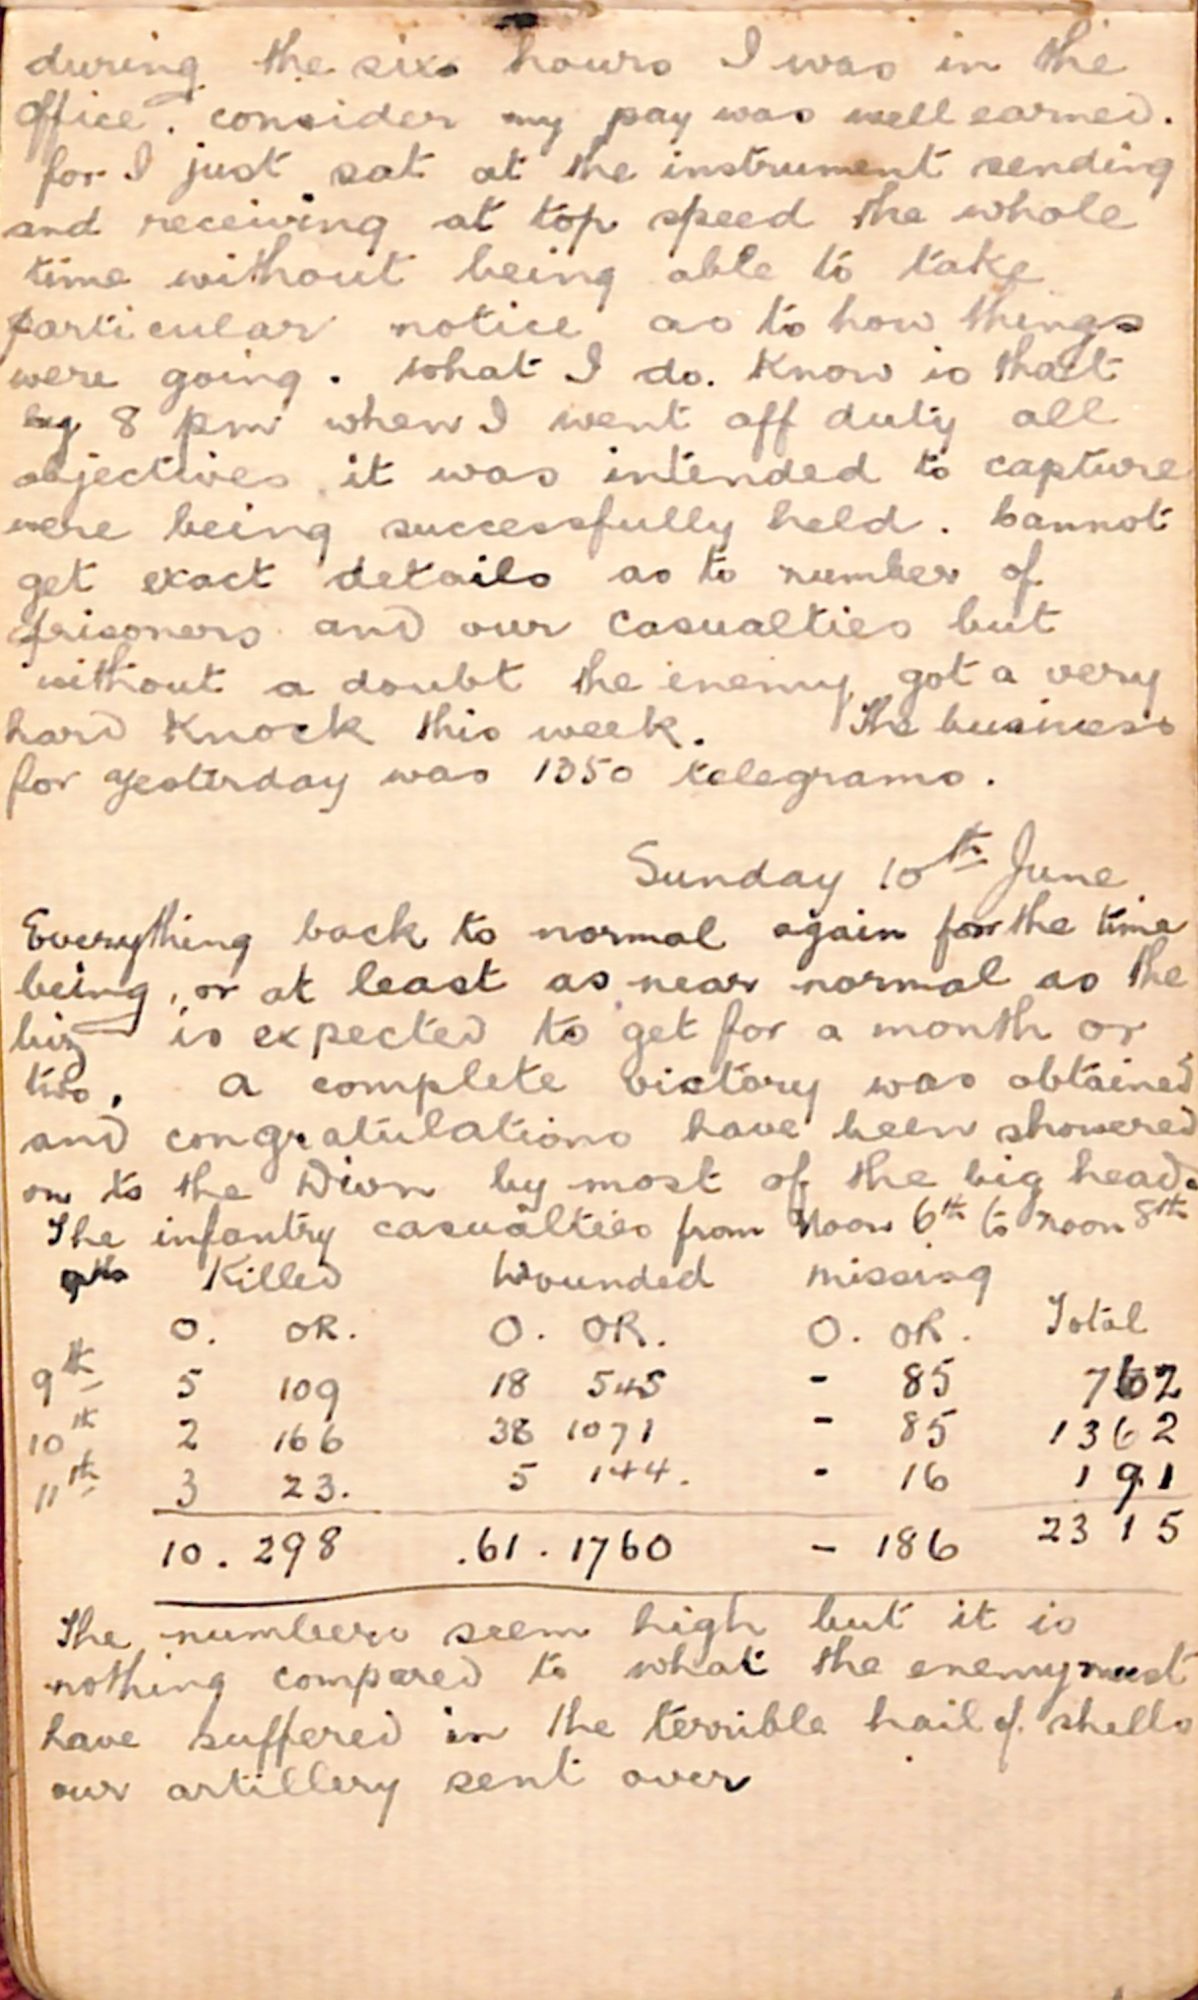 during the six hours I was in the
office. consider my pay was well earned.
for I just sat at the instrument sending
and receiving at top speed the whole
time without being able to take
particular notice as to how things
were going. What I do. Know is that
by 8 pm when I went off duty all
objectives it was intended to capture
were being successfully held. Cannot
get exact details as to number of
prisoners and our casualties but
without a doubt the enemy got a very
hard knock this week. The business
for yesterday was 1350 telegrams.
Sunday 10th June
Everything back to normal again for the time
being, or at least as near normal as the
biz is expected to get for a month or
two. A complete victory was obtained
and congratulations have been showered
on to the Divn by most of the big heads
The infantry casualties from Noon 6th to noon 8th
Killed Wounded missing
O. OR. O. OR. O. OR. Total
9th 5 109 18 545 - 85 762
10th 2 166 38 1071 - 85 1362
11th 3 23. 5 144. - 16 191
10. 298 .61. 1760 - 186 2315
The numbers seem high but it is
nothing compared to what the enemy must
have suffered in the terrible hail of shells
our artillery sent over